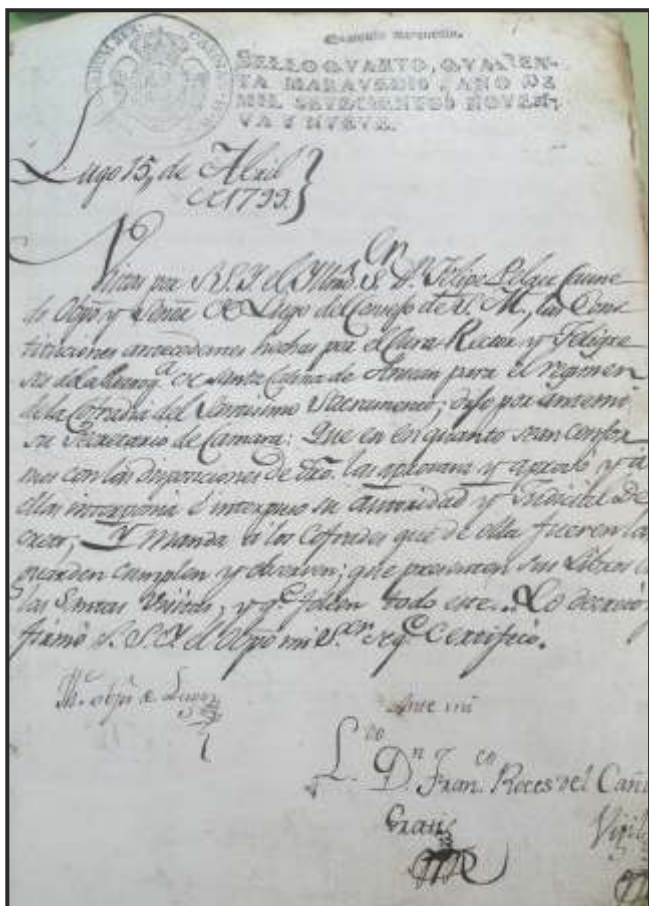 Quarenta maravedis.
SELLO QVARTO, QVAREN-
TA MARAVEDIS, AÑO DE
MIL SETECIENTOS NOVEN-
TA Y NUEVE.
Lugo 15, de Abril
de 1799.
Vistas por S.S.Y. el Yllmo. Sr. Dn. Felipe Pelaez Caune
do Obpo y Señor de Lugo del Consejo de S. M., las Cons
tituciones antecedentes hechas por el Cura Rector y Feligre
ses de la Parroqa. de Santa de para el régimen
de la Cofradia del Santisimo Sacramento; dijo por antemi
su Secretario de Camara: Que en en quanto sean confor
mes con las disposiciones de dro. las aprovava y aprovó y á
ellas interponia é interpuso su autoridad y Judicial De
creto; Y manda á los Cofrades que de ella fueren las
guarden cumplan y observen; que presenten sus Libros
las Santas Visitas, y qe. foleen todo este.. Lo decretó
firmó S. S. Y. el Obpo mi Sor. de qe. Certifico.
Obpo de Lugo
Ante mi
Ldo. Dn. Franco. Roces del Cañ
Gratis